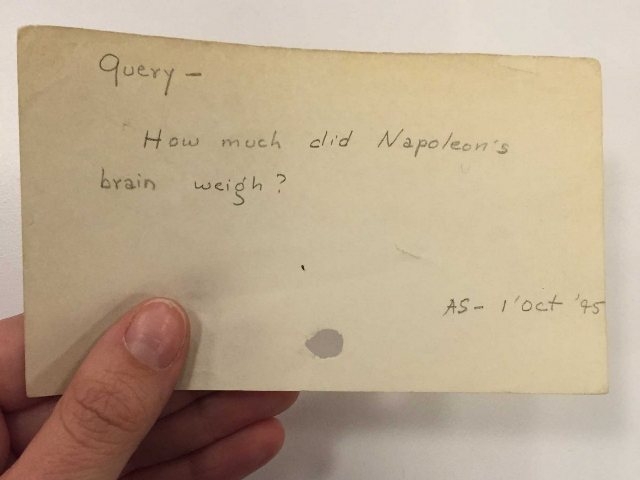 Query -
How much did Napoleon's
brain weigh?
AS - 1 Oct '45